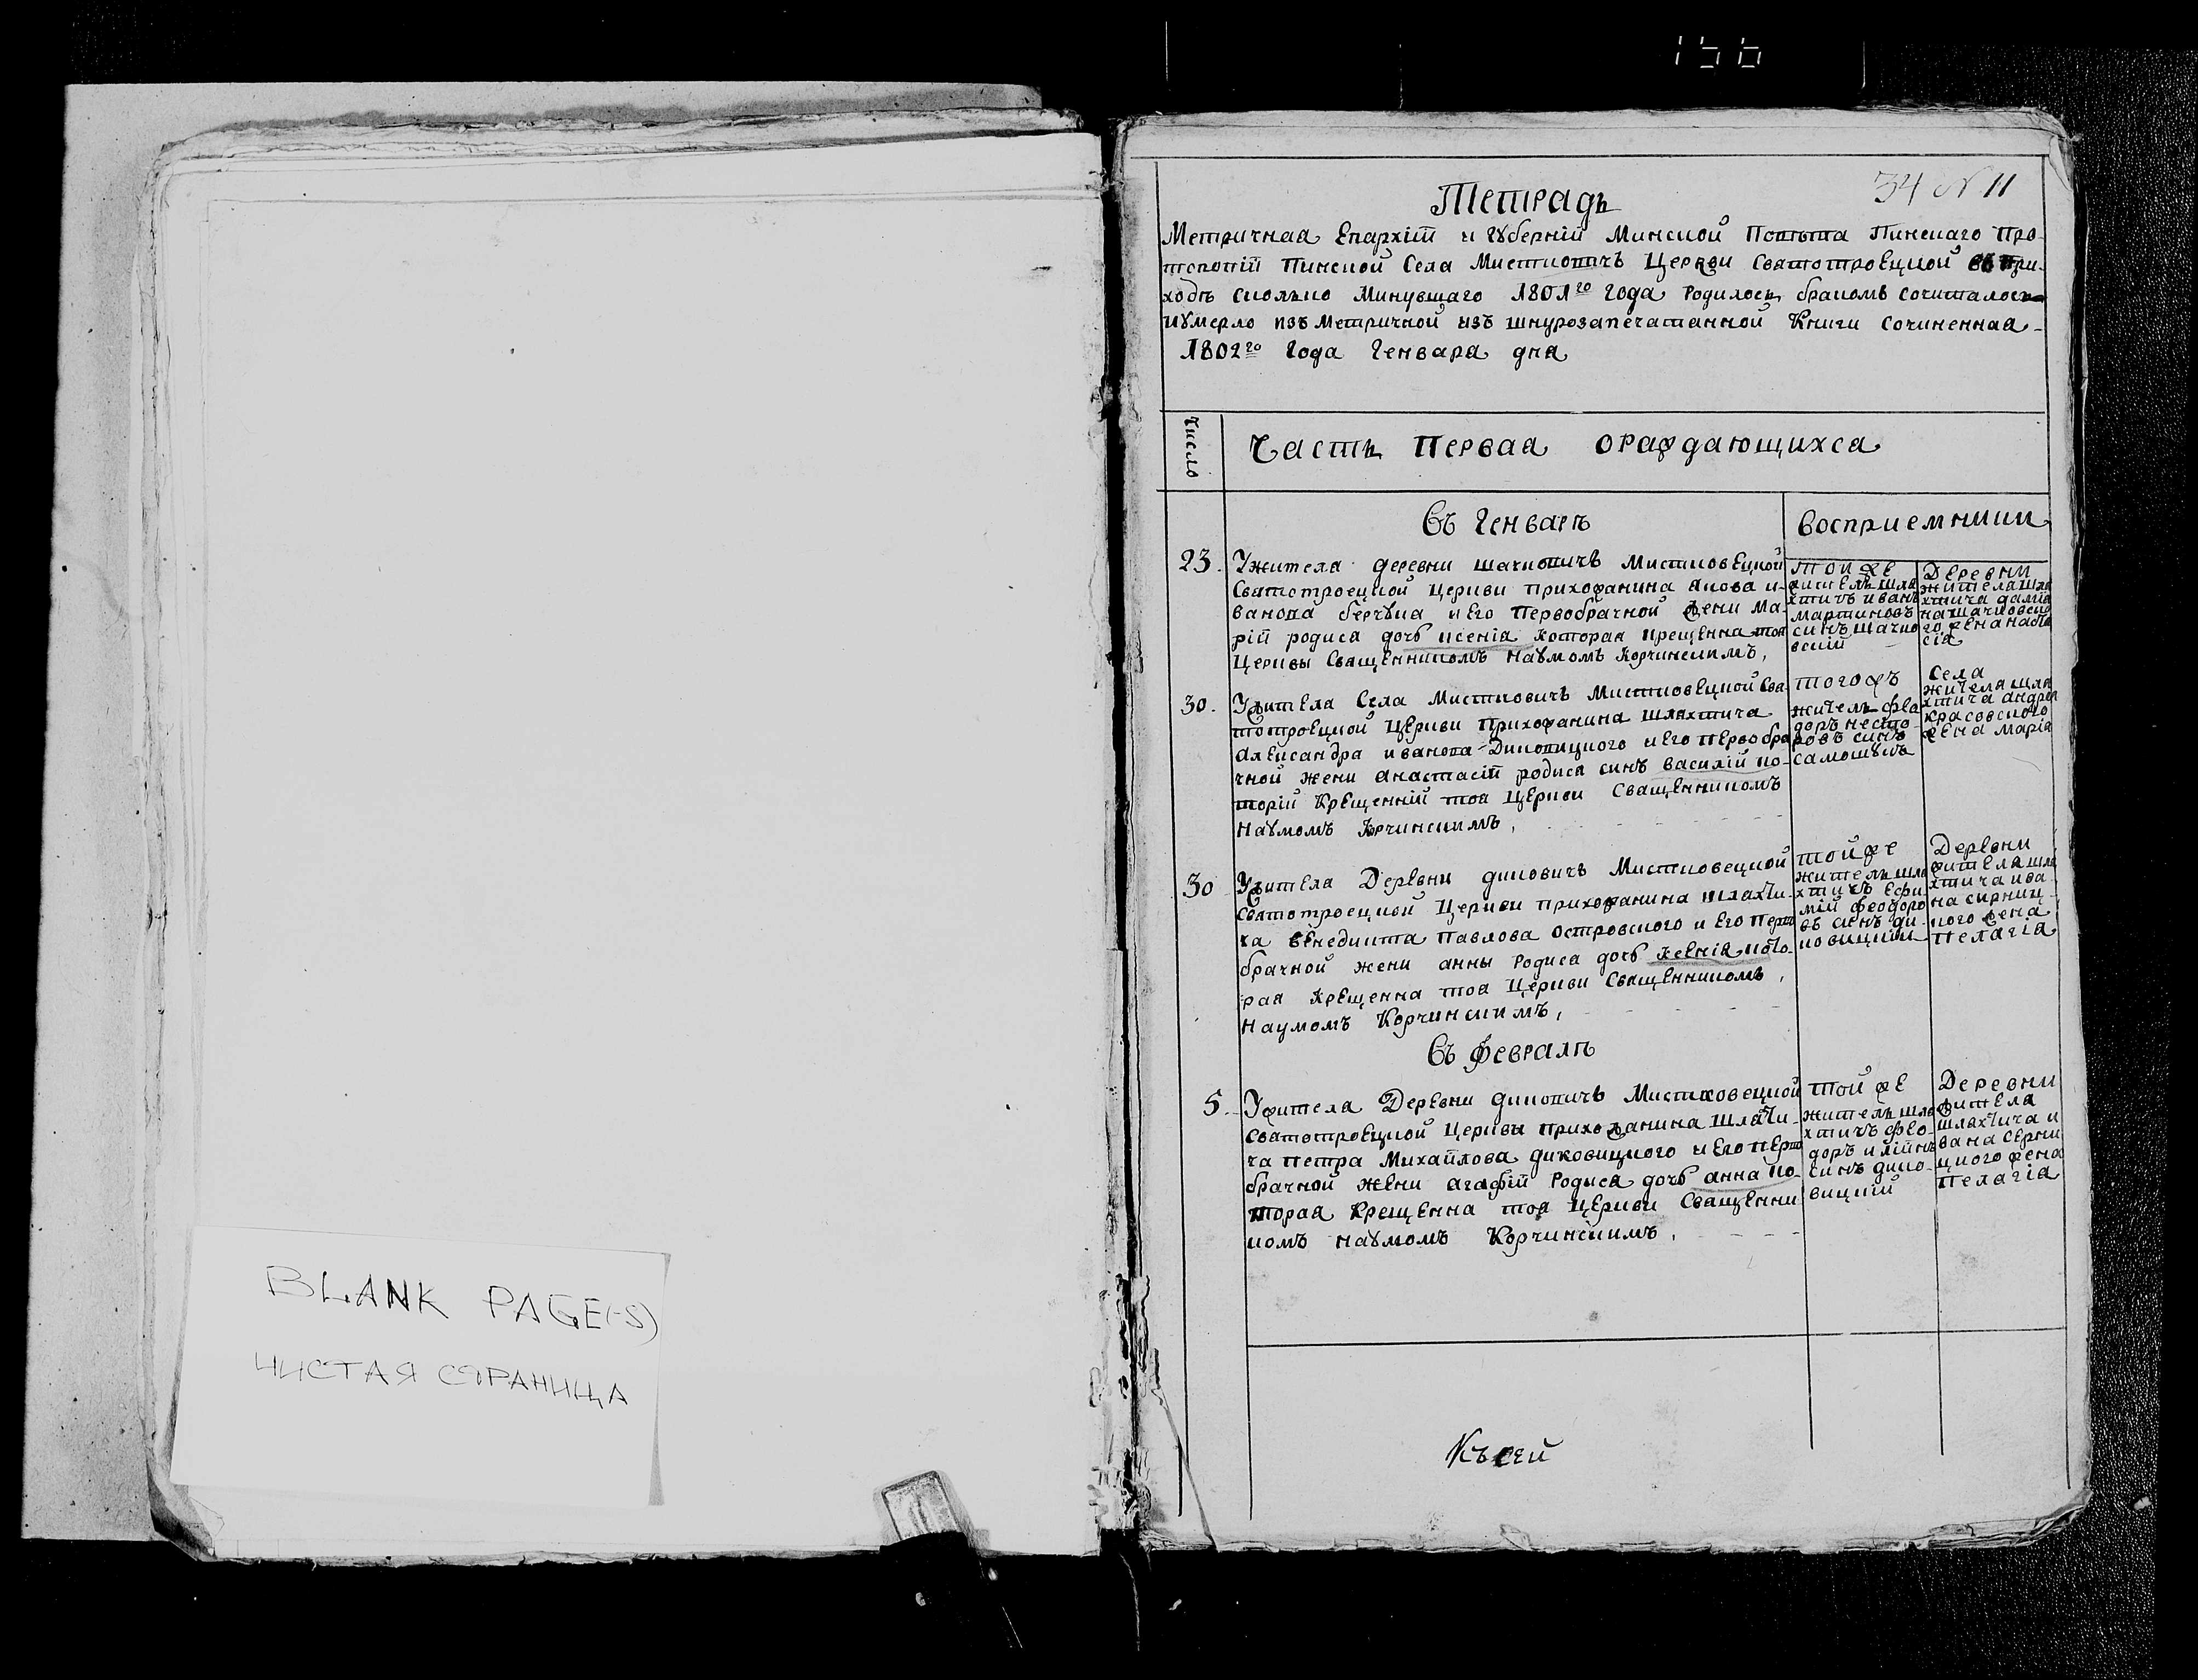 156
BLANK PAGE(-S)
ЧИСТАЯ СТРАНИЦА
34 N 11
Тетрадь
Метричная Епархіи и Губерніи Минской Повѣта Пинскаго Про-
топопіи Пинской Села Местковичъ Церкви Святотроецкой въ при-
ходѣ сколько Минувшаго 1801го года родилось бракомъ сочиталось
и умерло изъ Метричной изъ шнурозапечатанной Книги сочиненная
1802го года Генваря дня
Число
Часть Первая о раждающихся
Въ Генварѣ
Восприемники
23.
У жителя деревни Шахновичъ Мистковецкой
Святотроецкой Церкви прихожанина Якова и-
ванова и его Первобрачной жени Ма-
рій родися дочь ксенія которая крещенна тоя
Церквы Священникомъ Наумомъ Корчинскимъ,
той же
житель шля
хтичъ иванъ
мартиновъ
синъ шахно
вскій
Деревни
жителя шля
хтича даміа
на шахновско
го жена настa
сія
30.
У жителя Села Мистковичъ Мистковецкой Свя-
тотроецкой Церкви Прихожанина шляхтича
Александра иванова Диковицкого и его первобра
чной жени Анастасіи родися синъ василій ко-
торій Крещенній тоя Церкви Священникомъ
Наумомъ Корчинскимъ,
тогожъ
житель фео
доръ несто-
ровъ синъ
Села
жителя шля
хтича андрея
красовского
жена Марія
30
У жителя Деревни диковичъ Мистковецкой
Святотроецкой Церкви прихожанина шляхти-
ча Венедикта Павлова островского и его перво
брачной жени анны родися дочь Ксенія кото-
рая Крещенна тоя Церкви Священникомъ,
Наумомъ Корчинскимъ,
той же
житель шля
хтичъ Ефи-
мій феодоро
въ синъ ди-
ковицкій
Деревни
жителя шля
хтича ива-
на сирниц-
кого жена
Пелагія
Въ Февралѣ
5.
У жителя Деревни диковичъ Мистковецкой
Святотроецкой Церквы прихожанина Шляхти-
ча Петра Михайлова диковицкого и его перво
брачной жени агафіи родися дочь анна ко-
торая Крещенна тоя Церкви Священни
комъ Наумомъ Корчинскимъ,
той же
житель шля
хтичъ фео-
доръ илійнъ
синъ дико-
вицкій
Деревни
жителя
шляхтича и
вана серни
цкого жена
Пелагія
Къ сей